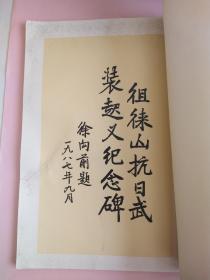 徂徕山抗日武
装起义纪念碑
徐向前题
一九八七年九月